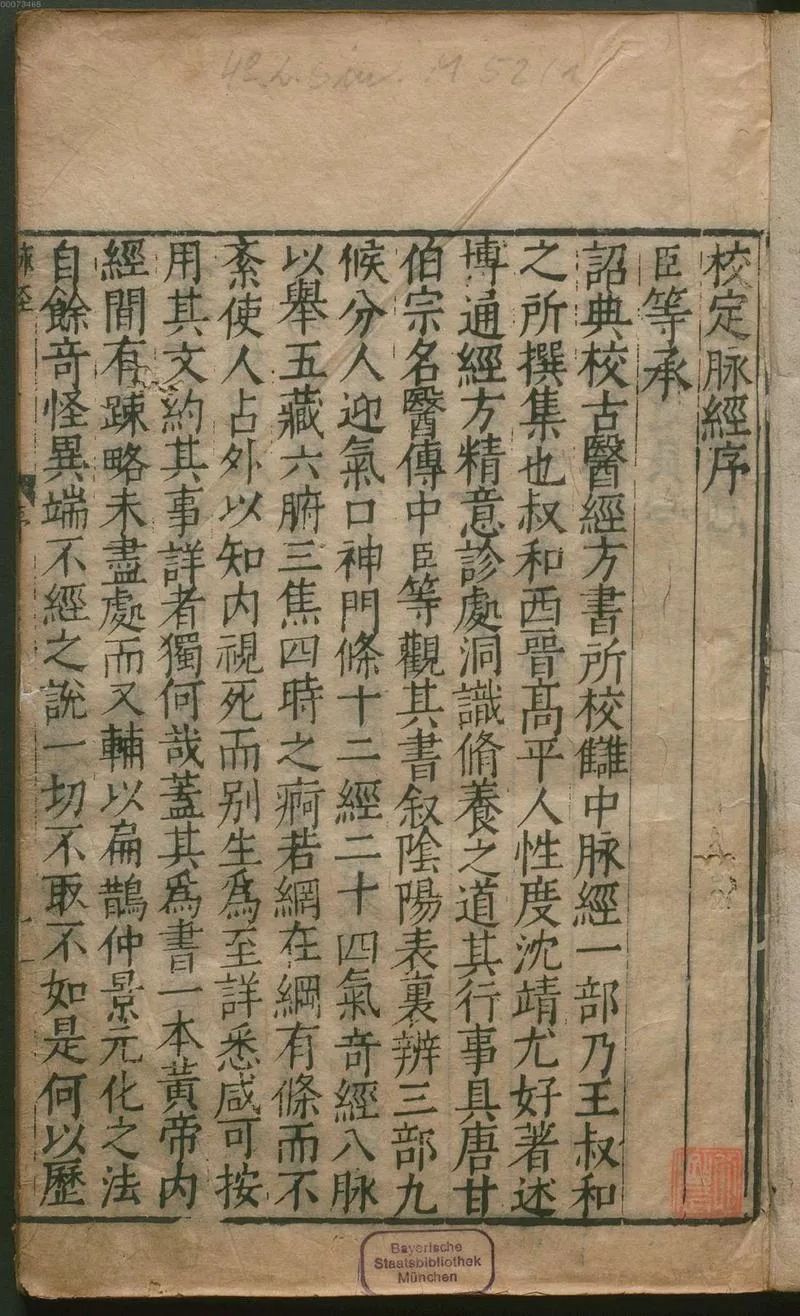 00073465
4° L. sin. M 52 (1
校定脉經序
臣等承
詔典校古醫經方書所校讎中脉經一部乃王叔和
之所撰集也叔和西晉髙平人性度沈靖尤好著述
博通經方精意診處洞識脩養之道其行事具唐甘
伯宗名醫傳中臣等觀其書叙陰陽表裏辨三部九
候分人迎氣口神門條十二經二十四氣奇經八脉
以舉五藏六腑三焦四時之痾若網在綱有條而不
紊使人占外以知内視死而别生爲至詳悉咸可按
用其文約其事詳者獨何哉蓋其爲書一本黄帝内
經間有踈略未盡處而又輔以扁鵲仲景元化之法
自餘奇怪異端不經之說一切不取不如是何以歷
脉經
Bayerische
Staatsbibliothek
München